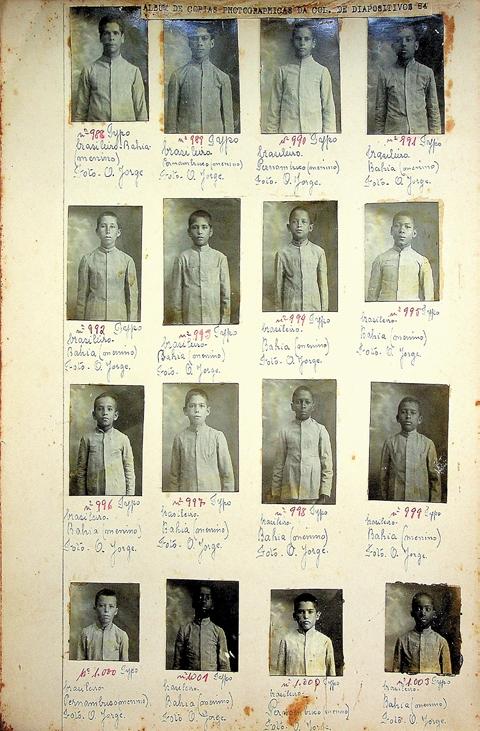 ALBUM DE COPIAS PHOTOGRAPHICAS DA COL. DE DIAPOSITIVOS 54
nº 988 Typo
brasileiro-Bahia
(menino)
Foto. O. Jorge
nº 989 Typo
brasileiro
Pernambuco (menino)
Foto. O. Jorge
nº 990 Typo
brasileiro.
Pernambuco (menino)
Foto. O. Jorge.
nº 991 Typo
brasileiro
Bahia (menino)
Foto. O. Jorge.
nº 992 Typo
brasileiro.
Bahia (menino)
Foto. O. Jorge.
nº 993 Typo
brasileiro.
Bahia (menino)
Foto. O. Jorge.
nº 994 Typo
brasileiro.
Bahia (menino)
Foto. O. Jorge.
nº 995 Typo
brasileiro.
Bahia (menino)
Foto. O. Jorge.
nº 996 Typo
brasileiro.
Bahia (menino)
Foto. O. Jorge.
nº 997 Typo
brasileiro.
Bahia (menino)
Foto. O. Jorge.
nº 998 Typo
brasileiro.
Bahia (menino)
Foto. O. Jorge.
nº 999 Typo
brasileiro.
Bahia (menino)
Foto. O. Jorge.
nº 1.000 Typo
brasileiro.
Pernambuco (menino)
Foto. O. Jorge.
nº 1.001 Typo
brasileiro.
Bahia (menino)
Foto. O. Jorge.
nº 1.002 Typo
brasileiro.
Pernambuco (menino)
Foto. O. Jorge.
nº 1.003 Typo
brasileiro.
Bahia (menino)
Foto. O. Jorge.